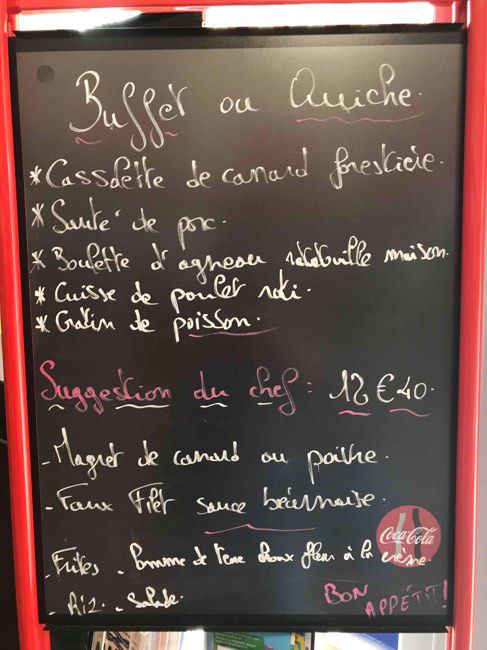 Buffet ou Quiche.
* Cassolette de canard forestière.
* Sauté de porc.
* Boulette d'agneau ratatouille maison.
* Cuisse de poulet roti.
* Gratin de poisson.
Suggestion du chef : 12 € 40.
- Magret de canard ou poivre.
- Faux Filet sauce béarnaise.
- Frites - Pomme de terre choux fleur à la crème.
- Riz - Salade.
Coca-Cola
BON APPÉTIT!